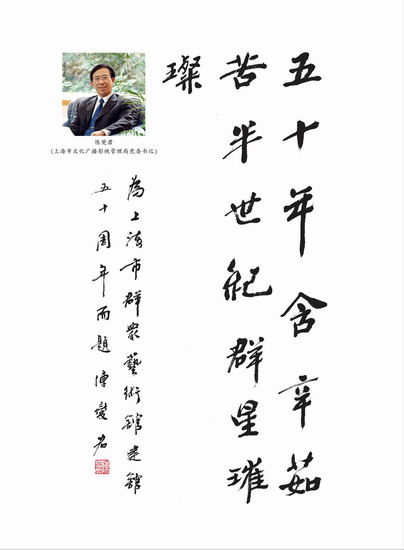 五十年含辛茹
苦半世紀群星璀
璨
陈燮君
(上海市文化广播影视管理局党委书记)
為上海市群眾藝術館建館
五十周年而題 陳燮君